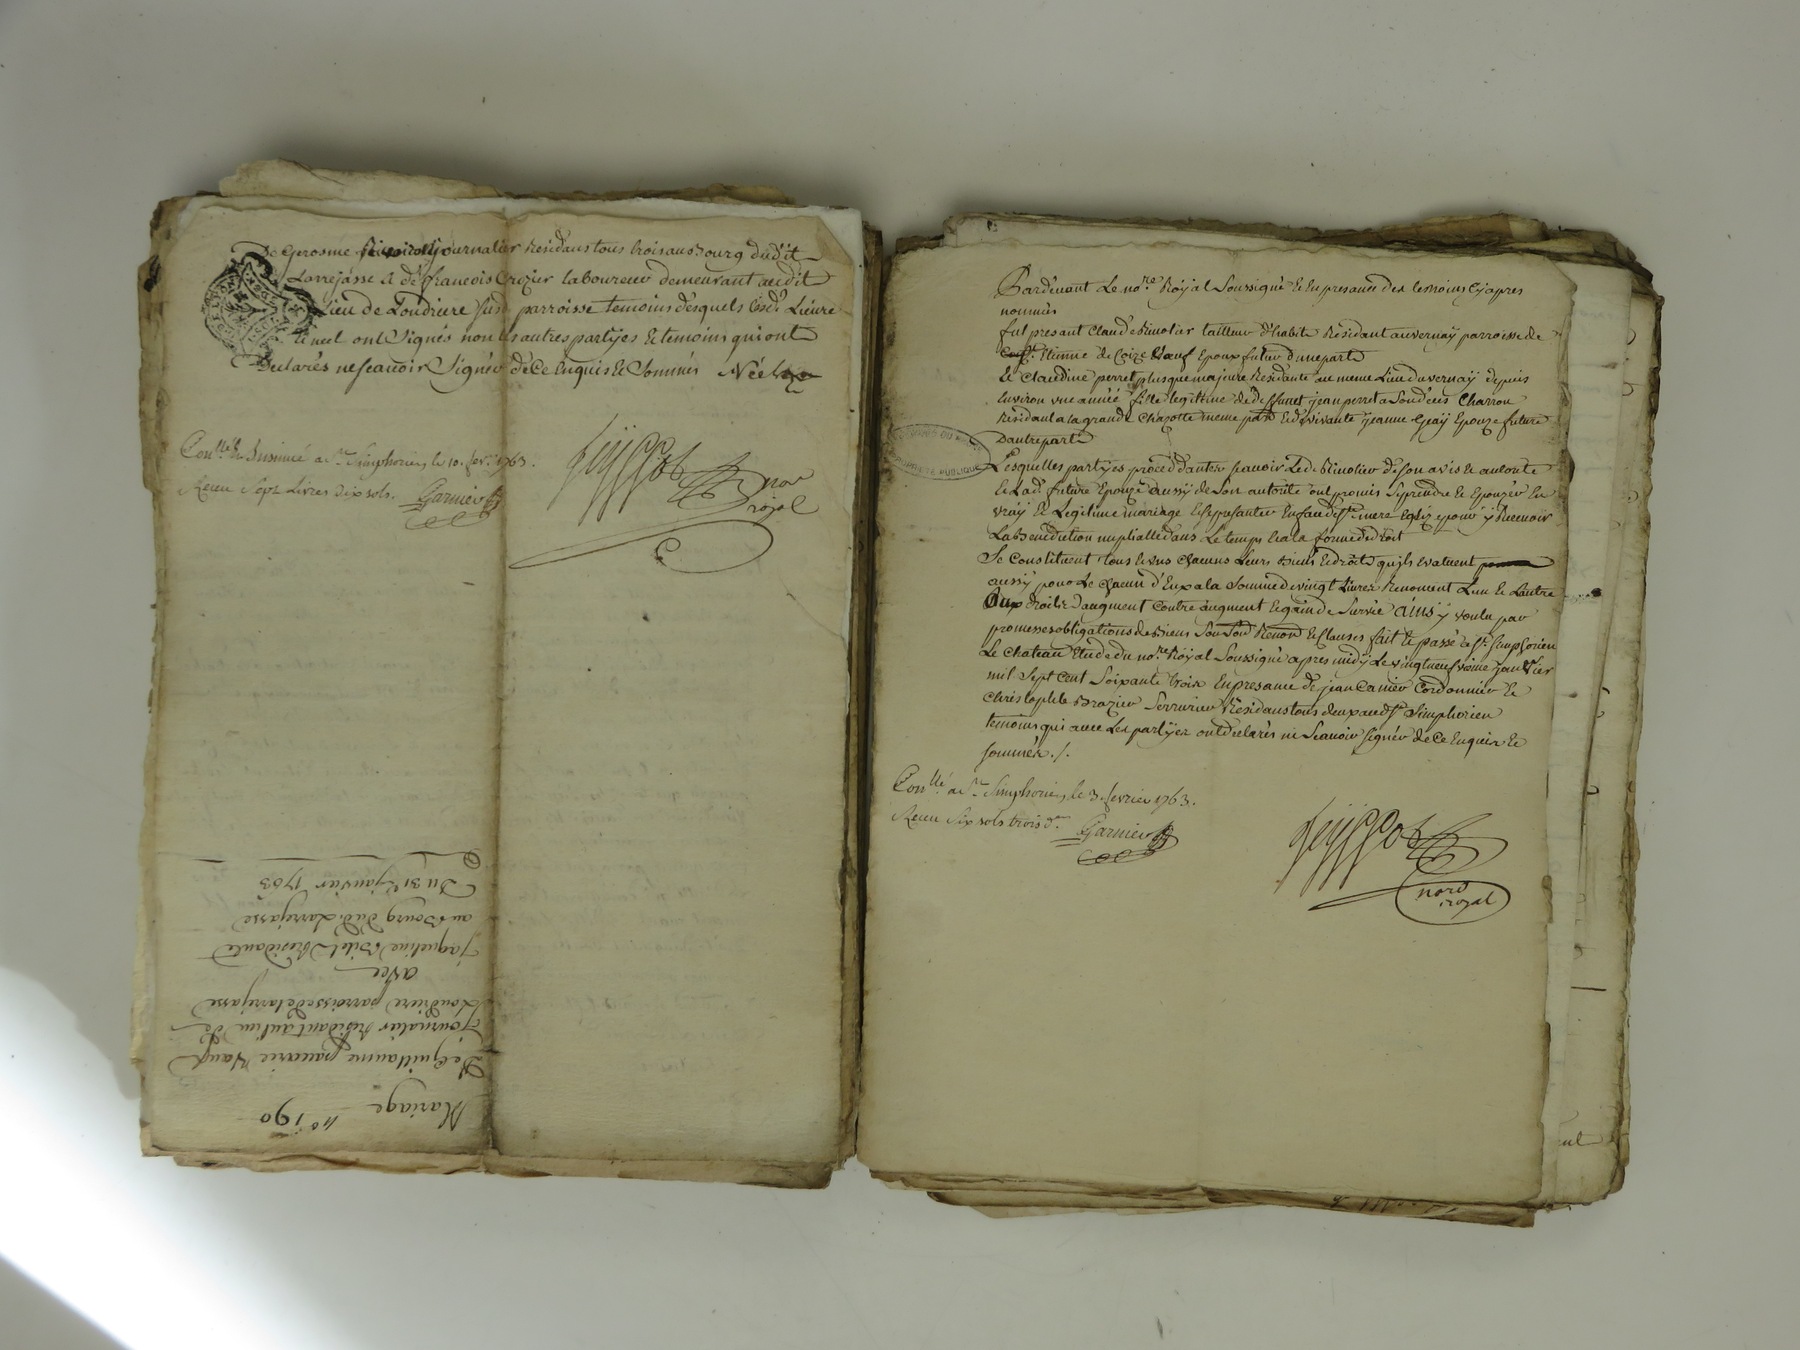 de Gerosme journalier Residans tous trois au Bourg dudit
Larrejasse et de francois Crozier laboureur demeurant audit
Lieu de Loudriere susd parroisse temoins desquels lesd. Lieure
et neel ont Signés non les autres partyes et temoins qui ont
Declarés ne scauoir Signer de Ce Enquis et Sommés Néel
Conllé et Insinué a St. Simphorien le 10. fevr. 1763.
Receu Sept Livres dix sols. Garnier
nore
royal
Mariage no 190
De Guillaume pauarie Vauf
Journalier Residant au lieu de
Loudriere parroisse de larrejasse
avec
Jaqueline Bilet Residante
au Bourg dud. Larrejasse
Du 31e janvier 1763
Pardevant Le nore. Royal Soussigné et En presance des temoins Cy apres
nommés
fut presant Claude Rimolier tailleur d'habits Residant au vernay parroisse de
Etienne de Coize Veuf Epoux futur d'une part
Et Claudine perret plus que majeure Residante au meme Lieu du vernaÿ depuis
Environ une année fille legitime de deffunct jean perret a Son deces Charron
Residant a la grande Chazotte meme parse Et de vivante jeanne Geaÿ Epouze future
D'autre part
Lesquelles partyes procedd'antes scauoir Led. Rimolier de Son avis et autorité
Et Lad. future Epouze aussÿ de Son autorité ont promis Se prendre et Epouzer En
vraÿ et Legitime mariage Et Se presanter En face de Ste. mere Eglize pour ÿ Receuoir
La Benediction nuptialle dans Le temps et a la forme de droit
Se Constituent tous Les Biens et droits quils Evaluent
aussÿ pour Le chacun d'Eux a la Somme de vingt Livres Renoncent L'un et L'autre
aux droits d'augment Contre augment et gain de Survie ainsy voulu par
promesses obligations de Biens Sou Sou Renond et Clauses fait et passé a St. Simphorien
Le Chateau Etude du nore. Royal Soussigné apres midÿ Le vingt neufvieme janvier
mil Sept Cent Soixante trois En presance de jean Carrier Cordonnier et
Christophle Brazier Serrurier Residans tous deux audt. St Simphorien
temoins qui auec Les partÿes ont declarés ne Scauoir signer de Ce Enquis et
Sommés ./.
Conllé a St. Simphorien le 3. fevrier 1763.
Receu Six sols trois drs. Garnier
nore
royal